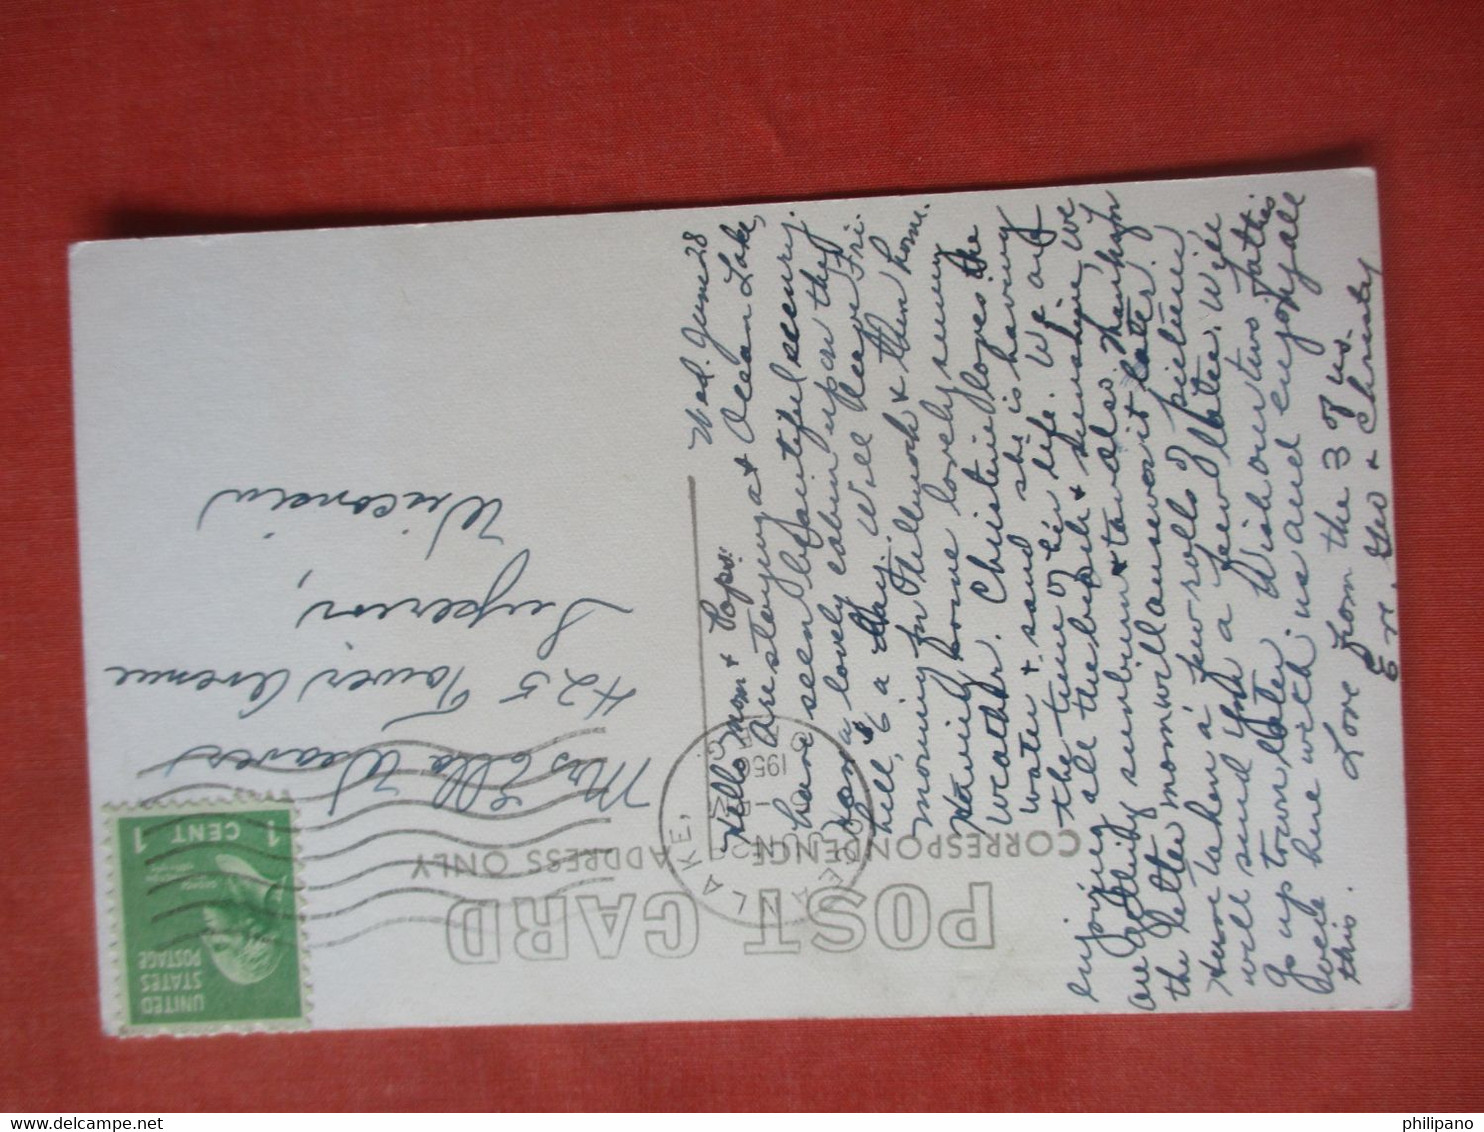 POST CARD
CORRESPONDENCE
ADDRESS ONLY
UNITED
STATES
POSTAGE
1 CENT 1
LAKE,
JUN
1950
Mrs Ella Weavers
425 Tower Avenue
Superior,
Wisconsin
Wed. June 28
Hello mom & Pops:
are staying at Ocean Lake,
have seen beautiful scenery.
a lovely cabin up on the
hill, $6 a day. Will leave Fri.
morning for Tillmook & then home.
Having some lovely sunny
weather. Christine loves the
water & sand she is having
the time of her life. We are
enjoying all the fresh & sunshine, we
are getting sunburn & tan also. Thanks for
the letter mom will answer it later.
Have taken a few rolls of pictures
will send you a few later. We'll
go up town later. Wish our two fathers
were here with us and enjoy all
this. Love from the 3 of us.
Em, Geo & Christy
philipano
delcampe.net